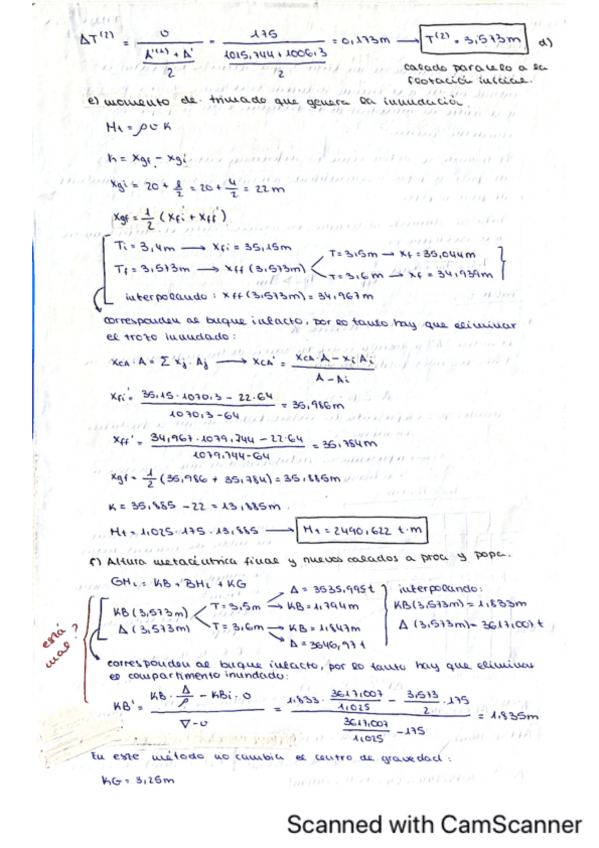 ΔT⁽²⁾ = υ / ((A'⁽¹⁾ + A')/2) = 175 / ((1015,744 + 1006,3)/2) = 0,173m → T⁽²⁾ = 3,573m d)
calado paralelo a la
flotación inicial.
e) momento de trimado que genera la inundación.
Mt = ρυk
k = xgf - xgi
xgi = 20 + l/2 = 20 + 4/2 = 22m
xgf = 1/2 (xfi' + xff')
Ti = 3,4m → xfi = 35,15m
T = 3,5m → xf = 35,044m
Tf = 3,573m → xff (3,573m)
T = 3,6m → xf = 34,939m
interpolando: xff (3,573m) = 34,967m
corresponden al buque intacto, por lo tanto hay que eliminar
el trozo inundado:
xCA · A = Σ xj · Aj → xCA' = (xCA · A - xi Ai) / (A - Ai)
xfi' = (35,15 · 1070,3 - 22 · 64) / (1070,3 - 64) = 35,986m
xff' = (34,967 · 1079,744 - 22 · 64) / (1079,744 - 64) = 35,784m
xgf = 1/2 (35,986 + 35,784) = 35,885m
k = 35,885 - 22 = 13,885m
Mt = 1,025 · 175 · 13,885 → Mt = 2490,622 t·m
f) Altura metacéntrica final y nuevos calados a proa y popa.
GML = KB + BML + KG
Δ = 3535,995t
interpolando:
KB (3,573m)
T = 3,5m → KB = 1,794m
KB (3,573m) = 1,833m
Δ (3,573m)
T = 3,6m → KB = 1,847m
Δ (3,573m) = 3617,007t
Δ = 3646,97t
está mal?
corresponden al buque intacto, por lo tanto hay que eliminar
el compartimento inundado:
KB' = (KB · Δ/ρ - KBi · υ) / (∇ - υ) = (1,833 · 3617,007/1,025 - 3,573/2 · 175) / (3617,007/1,025 - 175) = 1,835m
En este método no cambia el centro de gravedad:
KG = 3,25m
Scanned with CamScanner